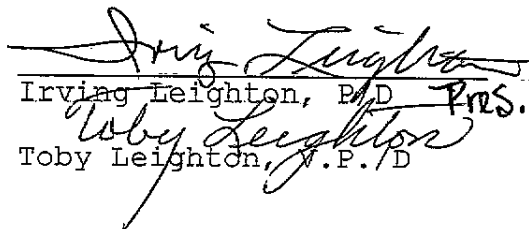 Irving Leighton
Irving Leighton, P/D Pres.
Toby Leighton
Toby Leighton, V.P./D